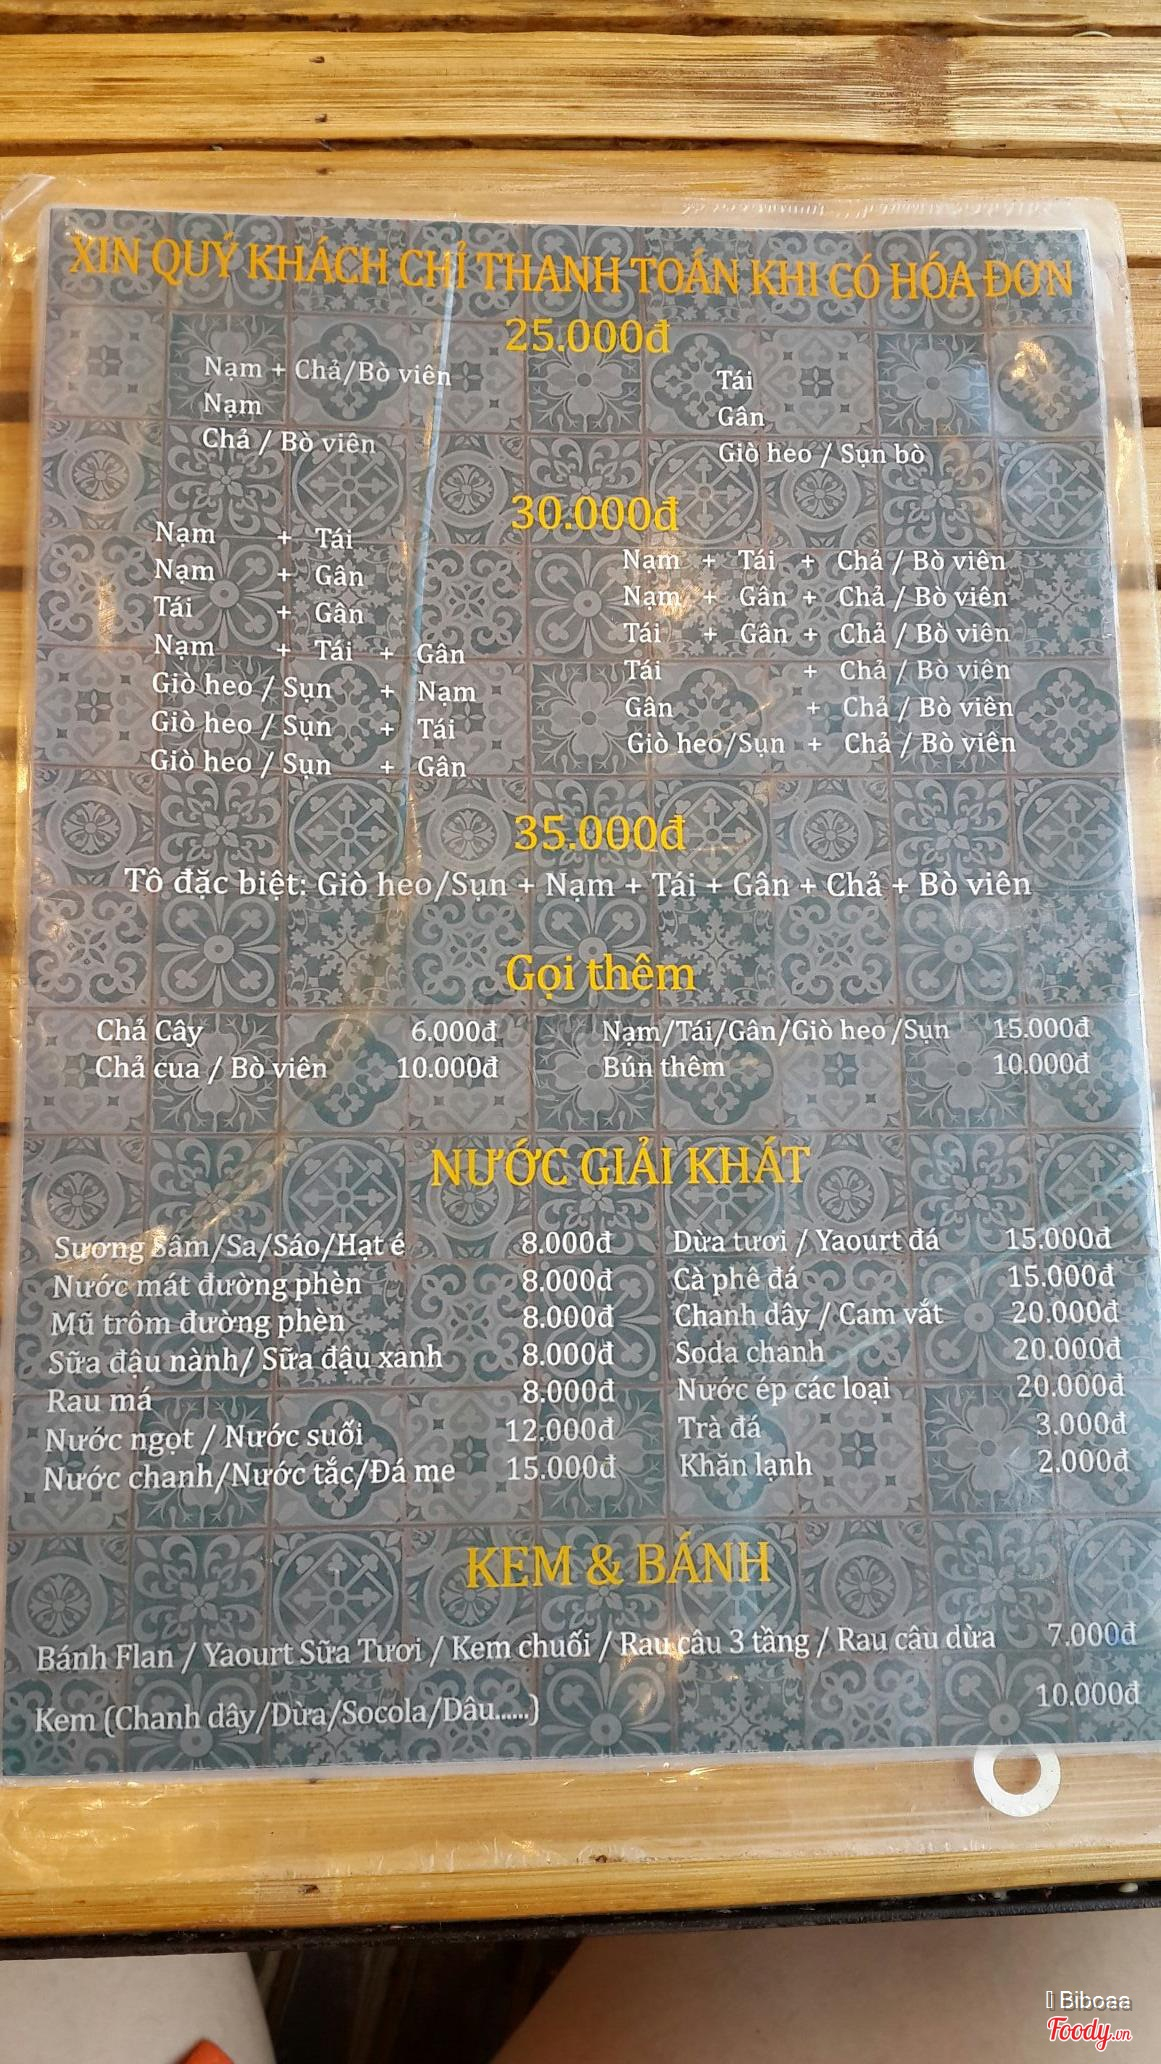 XIN QUÝ KHÁCH CHỈ THANH TOÁN KHI CÓ HÓA ĐƠN
25.000đ
Nạm + Chả/Bò viên
Nạm
Chả / Bò viên
Tái
Gân
Giò heo / Sụn bò
30.000đ
Nạm + Tái
Nạm + Gân
Tái + Gân
Nạm + Tái + Gân
Giò heo / Sụn + Nạm
Giò heo / Sụn + Tái
Giò heo / Sụn + Gân
Nạm + Tái + Chả / Bò viên
Nạm + Gân + Chả / Bò viên
Tái + Gân + Chả / Bò viên
Tái + Chả / Bò viên
Gân + Chả / Bò viên
Giò heo/Sụn + Chả / Bò viên
35.000đ
Tô đặc biệt: Giò heo/Sụn + Nạm + Tái + Gân + Chả + Bò viên
Gọi thêm
Chả Cây 6.000đ
Chả cua / Bò viên 10.000đ
Nạm/Tái/Gân/Giò heo /Sụn 15.000đ
Bún thêm 10.000đ
NƯỚC GIẢI KHÁT
Sương Sâm/Sa/Sáo/Hạt é 8.000đ
Nước mát đường phèn 8.000đ
Mũ trôm đường phèn 8.000đ
Sữa đậu nành/ Sữa đậu xanh 8.000đ
Rau má 8.000đ
Nước ngọt / Nước suối 12.000đ
Nước chanh/Nước tắc/Đá me 15.000đ
Dừa tươi / Yaourt đá 15.000đ
Cà phê đá 15.000đ
Chanh dây / Cam vắt 20.000đ
Soda chanh 20.000đ
Nước ép các loại 20.000đ
Trà đá 3.000đ
Khăn lạnh 2.000đ
KEM & BÁNH
Bánh Flan / Yaourt Sữa Tươi / Kem chuối / Rau câu 3 tầng / Rau câu dừa 7.000đ
Kem (Chanh dây/Dừa/Socola/Dâu......) 10.000đ
Biboaa
Foody.vn